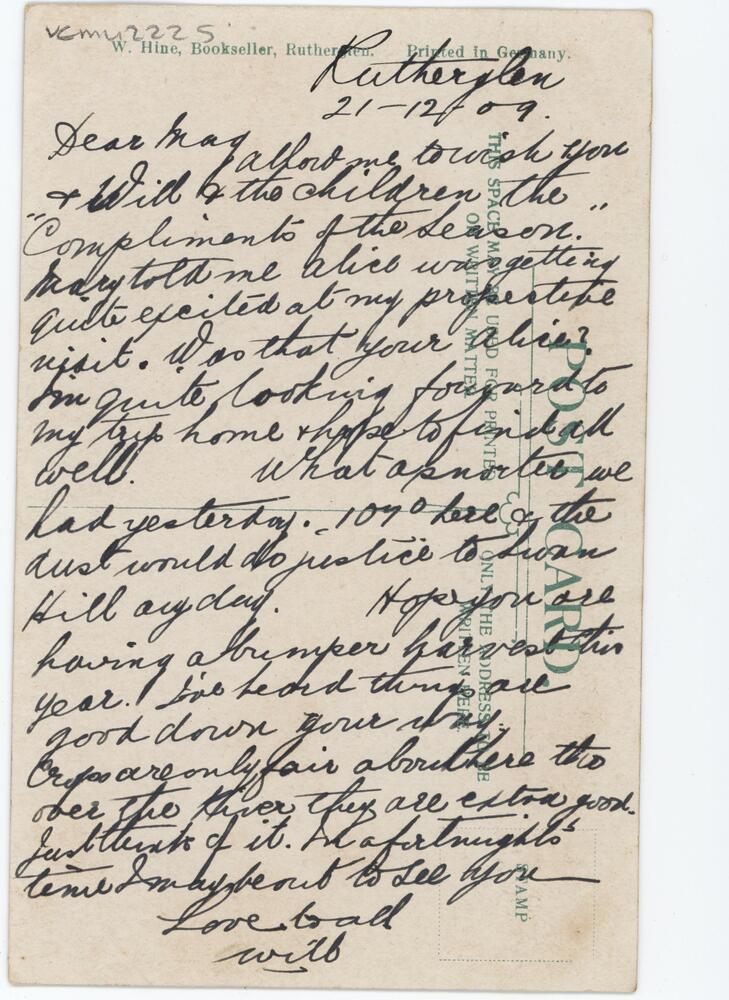 vcmu2225
W. Hine, Bookseller, Rutherglen. Printed in Germany.
Rutherglen
21-12-09.
Dear Mag
afford me to wish you
& Will & the children the
"Compliments of the Season."
Mary told me Alice was getting
quite excited at my prospective
visit. Was that your Alice?
Im quite looking forward to
my trip home & hope to find all
well. What a snorter we
had yesterday. 107° here & the
dust would do justice to Swan
Hill any day. Hope you are
having a bumper harvest this
year. I've heard things are
good down your way.
Crops are only fair about here tho
over the River they are extra good.
Just think of it. In a fortnights'
time I may be out to see you
Love to all
Will
THIS SPACE MAY BE USED FOR PRINTED
OR WRITTEN MATTER
POST CARD.
ONLY THE ADDRESS TO BE
WRITTEN HERE
STAMP